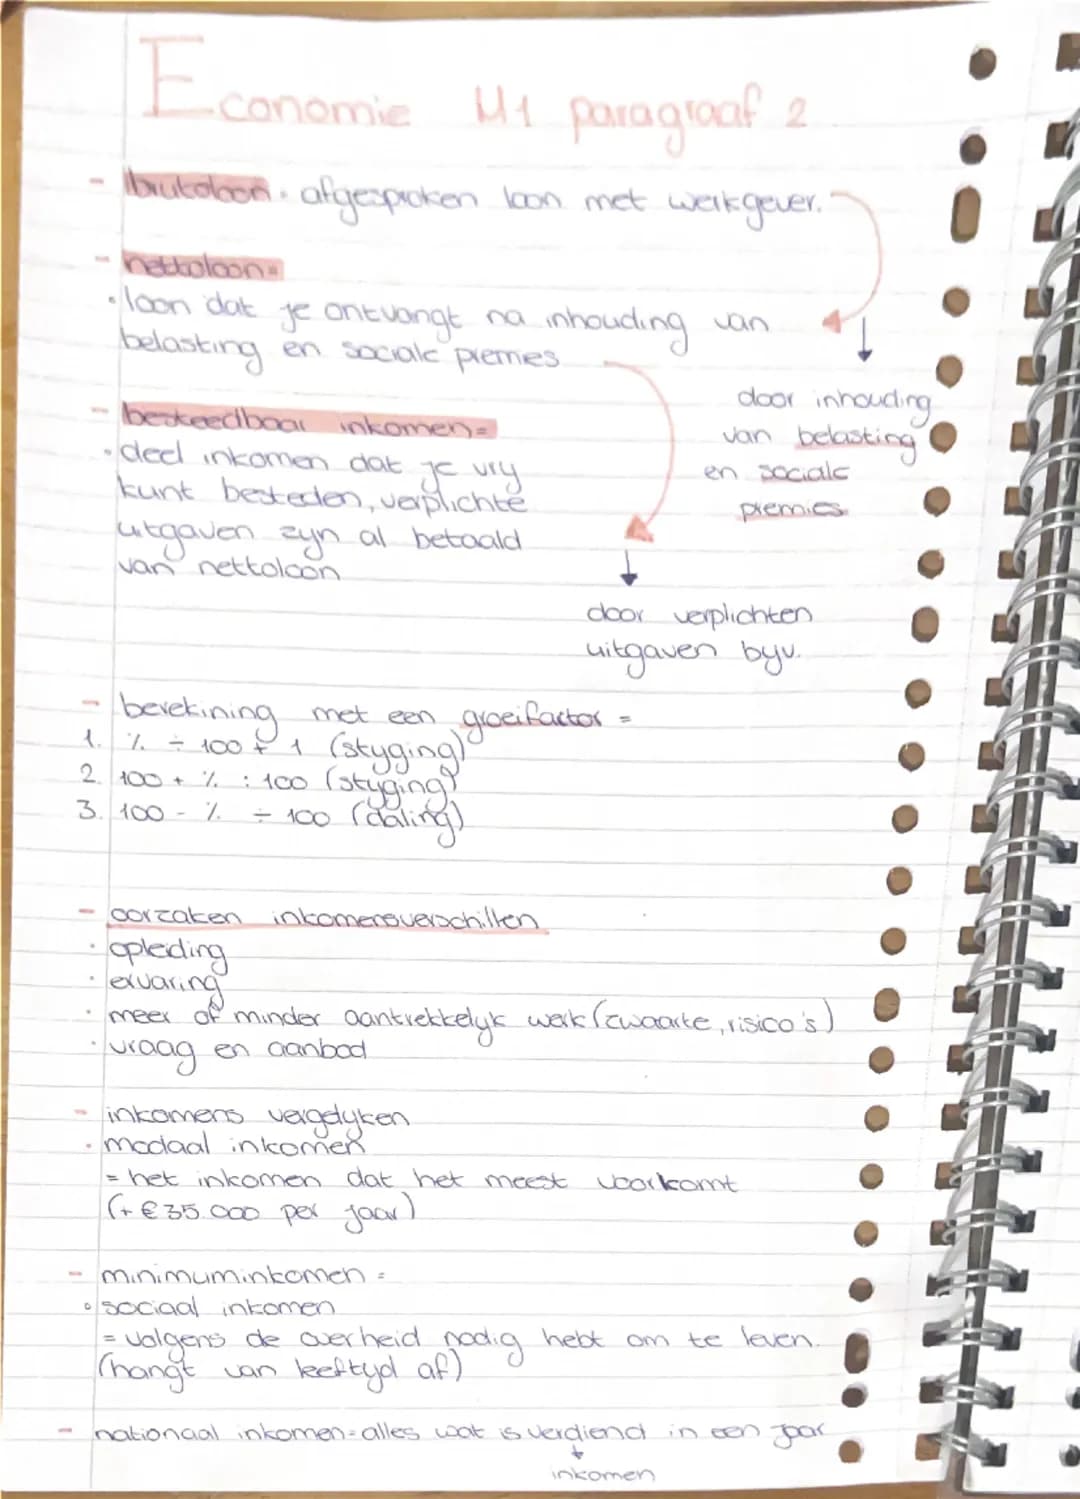 Economie H1 paragraaf 2
- brutoloon = afgesproken loon met werkgever.
- nettoloon=
• loon dat je ontvangt na inhouding van
belasting en sociale premies
door inhouding
van belasting
en sociale
premies
- besteedbaar inkomen=
• deel inkomen dat je vrij
kunt besteden, verplichte
uitgaven zijn al betaald
van nettoloon
door verplichten
uitgaven bijv.
- berekining met een groeifactor =
1. % ÷ 100 + 1 (stijging)
2. 100 + % : 100 (stijging)
3. 100 - % ÷ 100 (daling)
- oorzaken inkomensverschillen
• opleiding
• ervaring
• meer of minder aantrekkelijk werk (zwaarte, risico's)
• vraag en aanbod
- inkomens vergelijken
• modaal inkomen
= het inkomen dat het meest voorkomt
(+ €35.000 per jaar)
- minimuminkomen =
• sociaal inkomen
= volgens de overheid nodig hebt om te leven.
(hangt van leeftijd af)
- nationaal inkomen = alles wat is verdiend in een jaar
inkomen